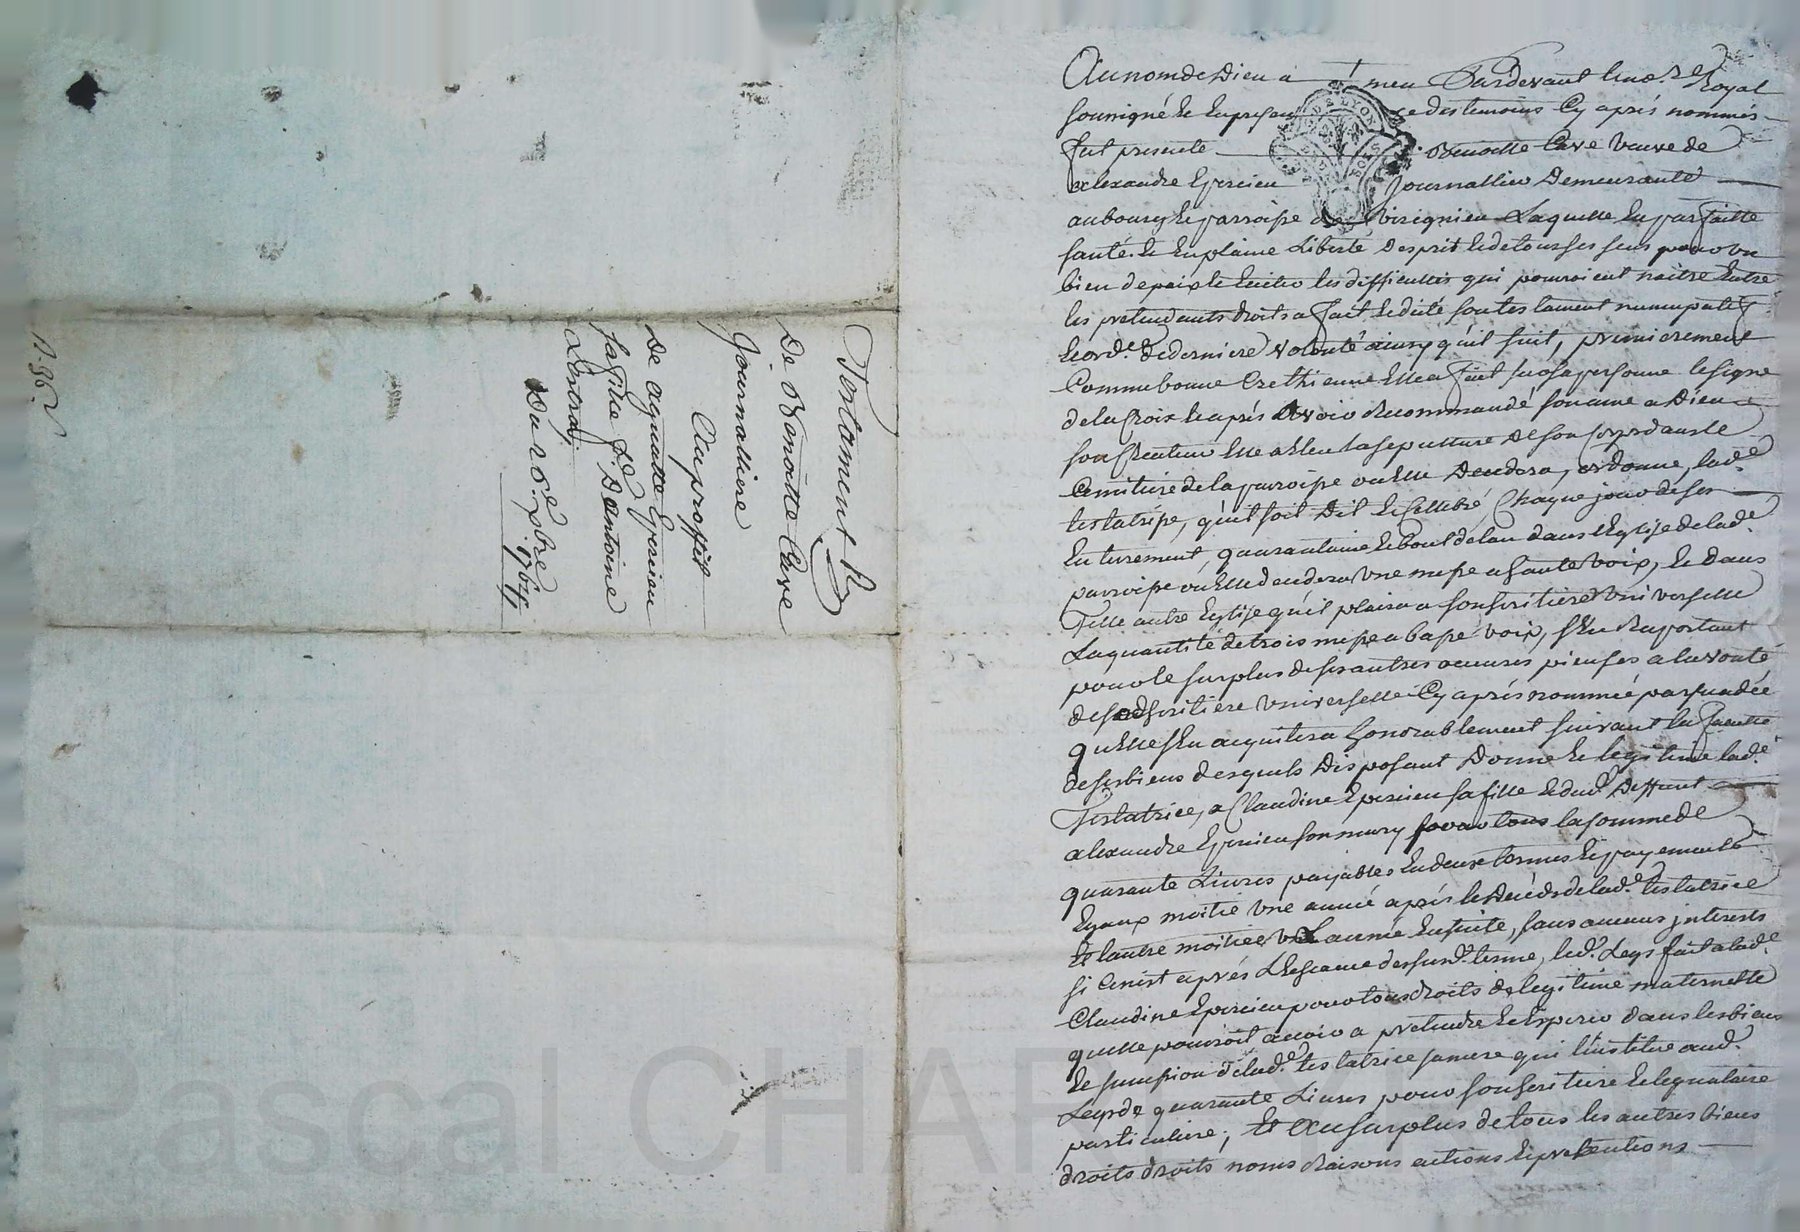 Testament
De Benoitte Cave
Journalliere
Au proffit
De agnatte Epercieu
sa fille & D'antoine
Extrait
Du 20e 8bre 1764
Au nom de Dieu a men Pardevant le no.re Royal
sousigné Et En presen ce des temoins Cy aprés nommés
fut presente Benoitte Cave veuve de
alexandre Epercieu Journallier Demeurante
au bourg Et parroisse de Virignieu Laquelle En parfaitte
santé Et En plaine Liberté Desprit Et de tous ses sens pour un
bien de paix Et Eviter les difficultés qui pouroient naitre Entre
les pretendants droits a fait Et dicté son testament nuncupatif
Et ord.e de derniere volonté ainsy qu'il suit, premierement
Comme bonne Crethienne Elle a fait sur sa personne le signe
de la Croix Et aprés Avoir Recommandé son ame a Dieu
son Createur Elle a Eleu la sepulture De son Corps dans le
Cemitiere de la parroisse ou Elle Decedera, ordonne, lad.e
testatrisse, qu'il soit Dit Et Cellebré, Chaque jour de ses
Enterrement, quarantaine Et bout de lan dans l'Eglise de lad.e
parroisse ou Elle decedera une messe a haute voix, Et Dans
Telle autre Eglise qu'il plaira a son heritiere universelle
La quantité de trois messe a basse voix, s'En Raportant
pour le surplus de ses autres oeuvres pieuses a la vonté
de sad heritiere universelle Cy aprés nommée parsuadée
qu'Elle s'En aquitera honorablement suivant la faculté
de ses biens desquels Disposant Donne Et legitime lad.e
Testatrice, a Claudine Epercieu sa fille Et dud.t Deffunt
alexandre Epercieu son mary la somme de
quarante Livres payables En deux termes Et payements
Egaux moitié une année aprés le Décéds de lad.e testatrice
Et l'autre moitiée une année Ensuite, sans aucuns jnterests
si Ce n'est aprés L'Escheance dessusd.t terme, led.t Legs fait a lad.e
Claudine Epercieu pour tous droits de legitime maternelle
qu'elle pouroit avoir a pretendre Et Esperer dans les biens
Et sucession de lad.e testatrice sa mere qui l'institue aud.t
Legs de quarante Livres pour son heritiere Et legnataire
particuliere; Et Au surplus de tous les autres biens
droits droits noms Raisons actions Et pretentions